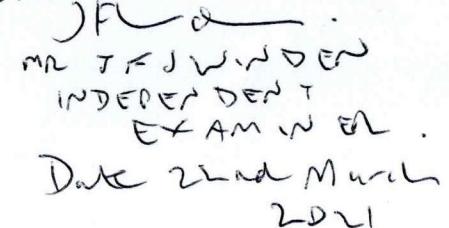 MR J F J WINDEN
INDEPENDENT
EXAMINER.
Date 22nd March
2021